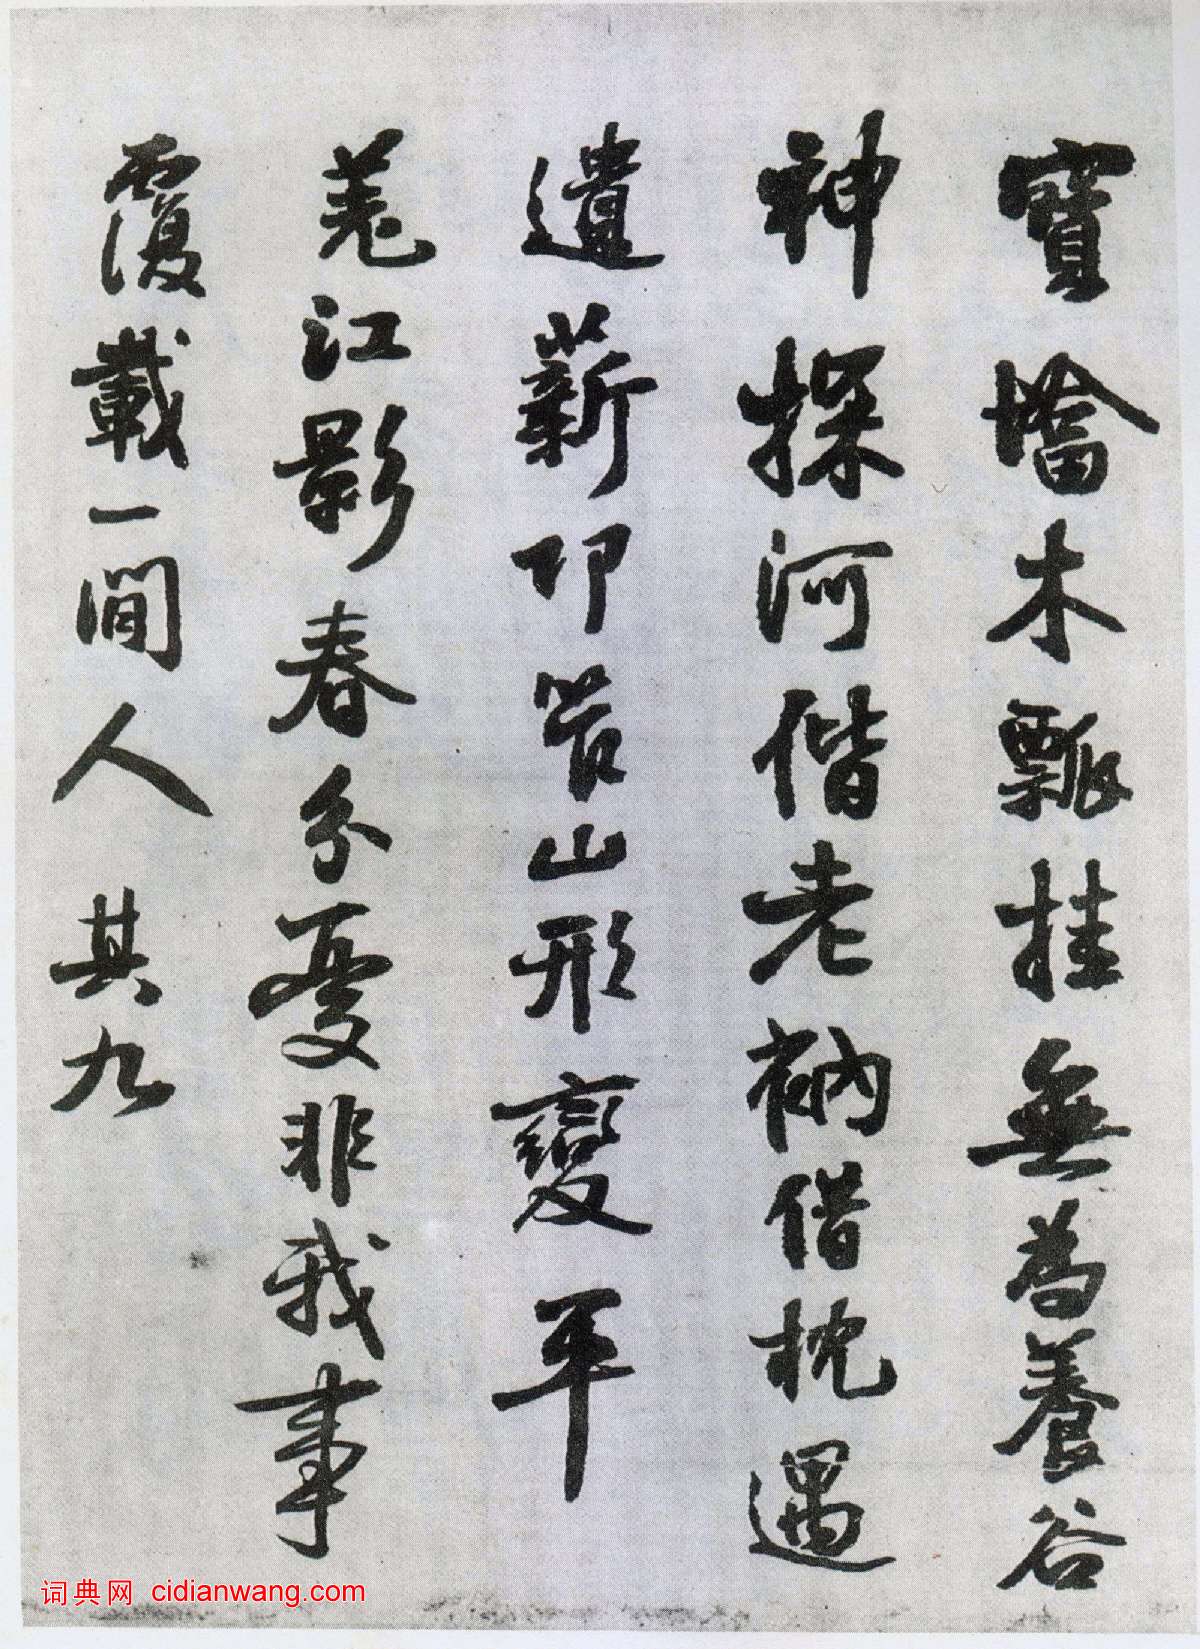 寶墖木瓢挂無為養谷
神探河偕老衲借枕遇
遺薪叩管山形變平
羌江影春分憂非我事
覆載一間人 其九
词典网 cidianwang.com